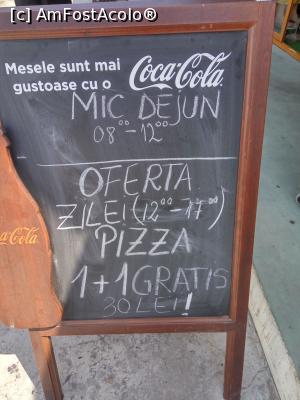 [c] AmFostAcolo®
Mesele sunt mai
gustoase cu o
Coca-Cola
MIC DEJUN
08⁰⁰-12⁰⁰
OFERTA
ZILEI (12⁰⁰-17⁰⁰)
PIZZA
1+1 GRATIS
30 LEI!
Coca-Cola